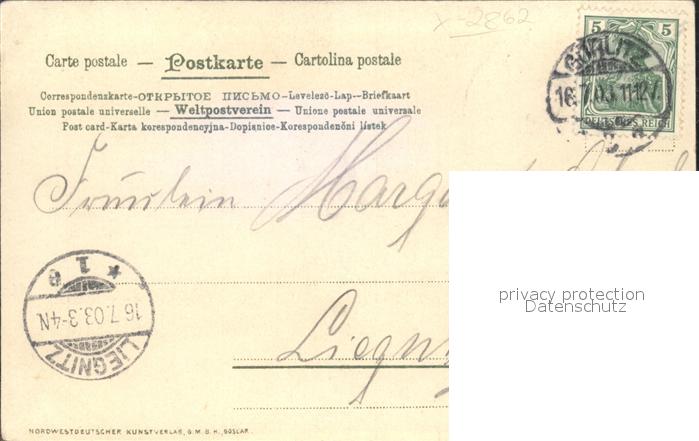 X-2862
Carte postale — Postkarte — Cartolina postale
Correspondenzkarte-ОТКРЫТОЕ ПИСЬМО-Levelező-Lap-Briefkaart
Union postale universelle — Weltpostverein — Unione postale universale
Post card-Karta korespondencyjna-Dopisnice-Korespondenční lístek
5 5
DEUTSCHES REICH
GÖRLITZ
16.7.03.11-12V.
Fräulein
Liegnitz
LIEGNITZ
16.7.03.3-4N.
* 1 e
privacy protection
Datenschutz
NORDWESTDEUTSCHER KUNSTVERLAG, G.M.B.H., GOSLAR.